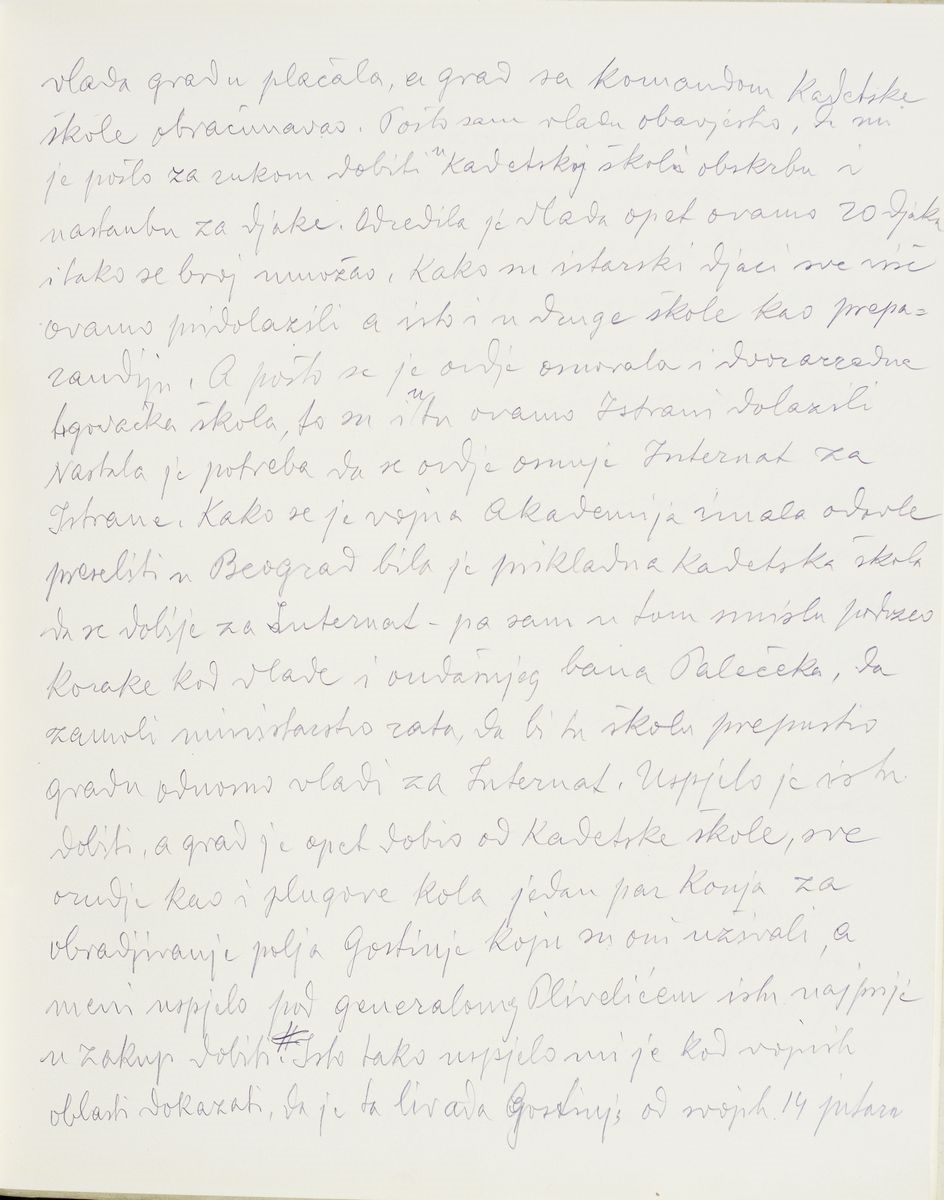 vlada gradu plaćala, a grad sa komandom Kadetske
škole obračunavao. Pošto sam vladu obavjestio, da mi
je pošlo za rukom dobiti u Kadetskoj školi obskrbu i
nastambu za djake. Odredila je vlada opet ovamo 20 djaka
i tako se broj množao. Kako su istarski djaci sve više
ovamo pridolazili a isto i u druge škole kao prepa=
randiju. A pošto se je ovdje osnovala i dvorazredna
trgovačka škola, to su i u tu ovamo Istrani dolazili
Nastala je potreba da se ovdje osnuje Internat za
Istrane. Kako se je vojna Akademija imala odavle
preseliti u Beograd bila je prikladna kadetska škola
da se dobije za Internat - pa sam u tom smislu poduzeo
korake kod vlade i ondašnjeg bana Palečeka, da
zamoli ministarstvo rata, da bi tu školu prepustio
gradu odnosno vladi za Internat. Uspjelo je istu
dobiti, a grad je opet dobio od Kadetske škole, sve
orudje kao i plugove kola jedan par Konja za
obradjivanje polja Gostinje koju su oni uživali, a
meni uspjelo pod generalom Plivelićem istu najprije
u zakup dobiti. # Isto tako uspjelo mi je kod vojnih
oblasti dokazati, da je ta livada Gostinje od svojih 14 jutara